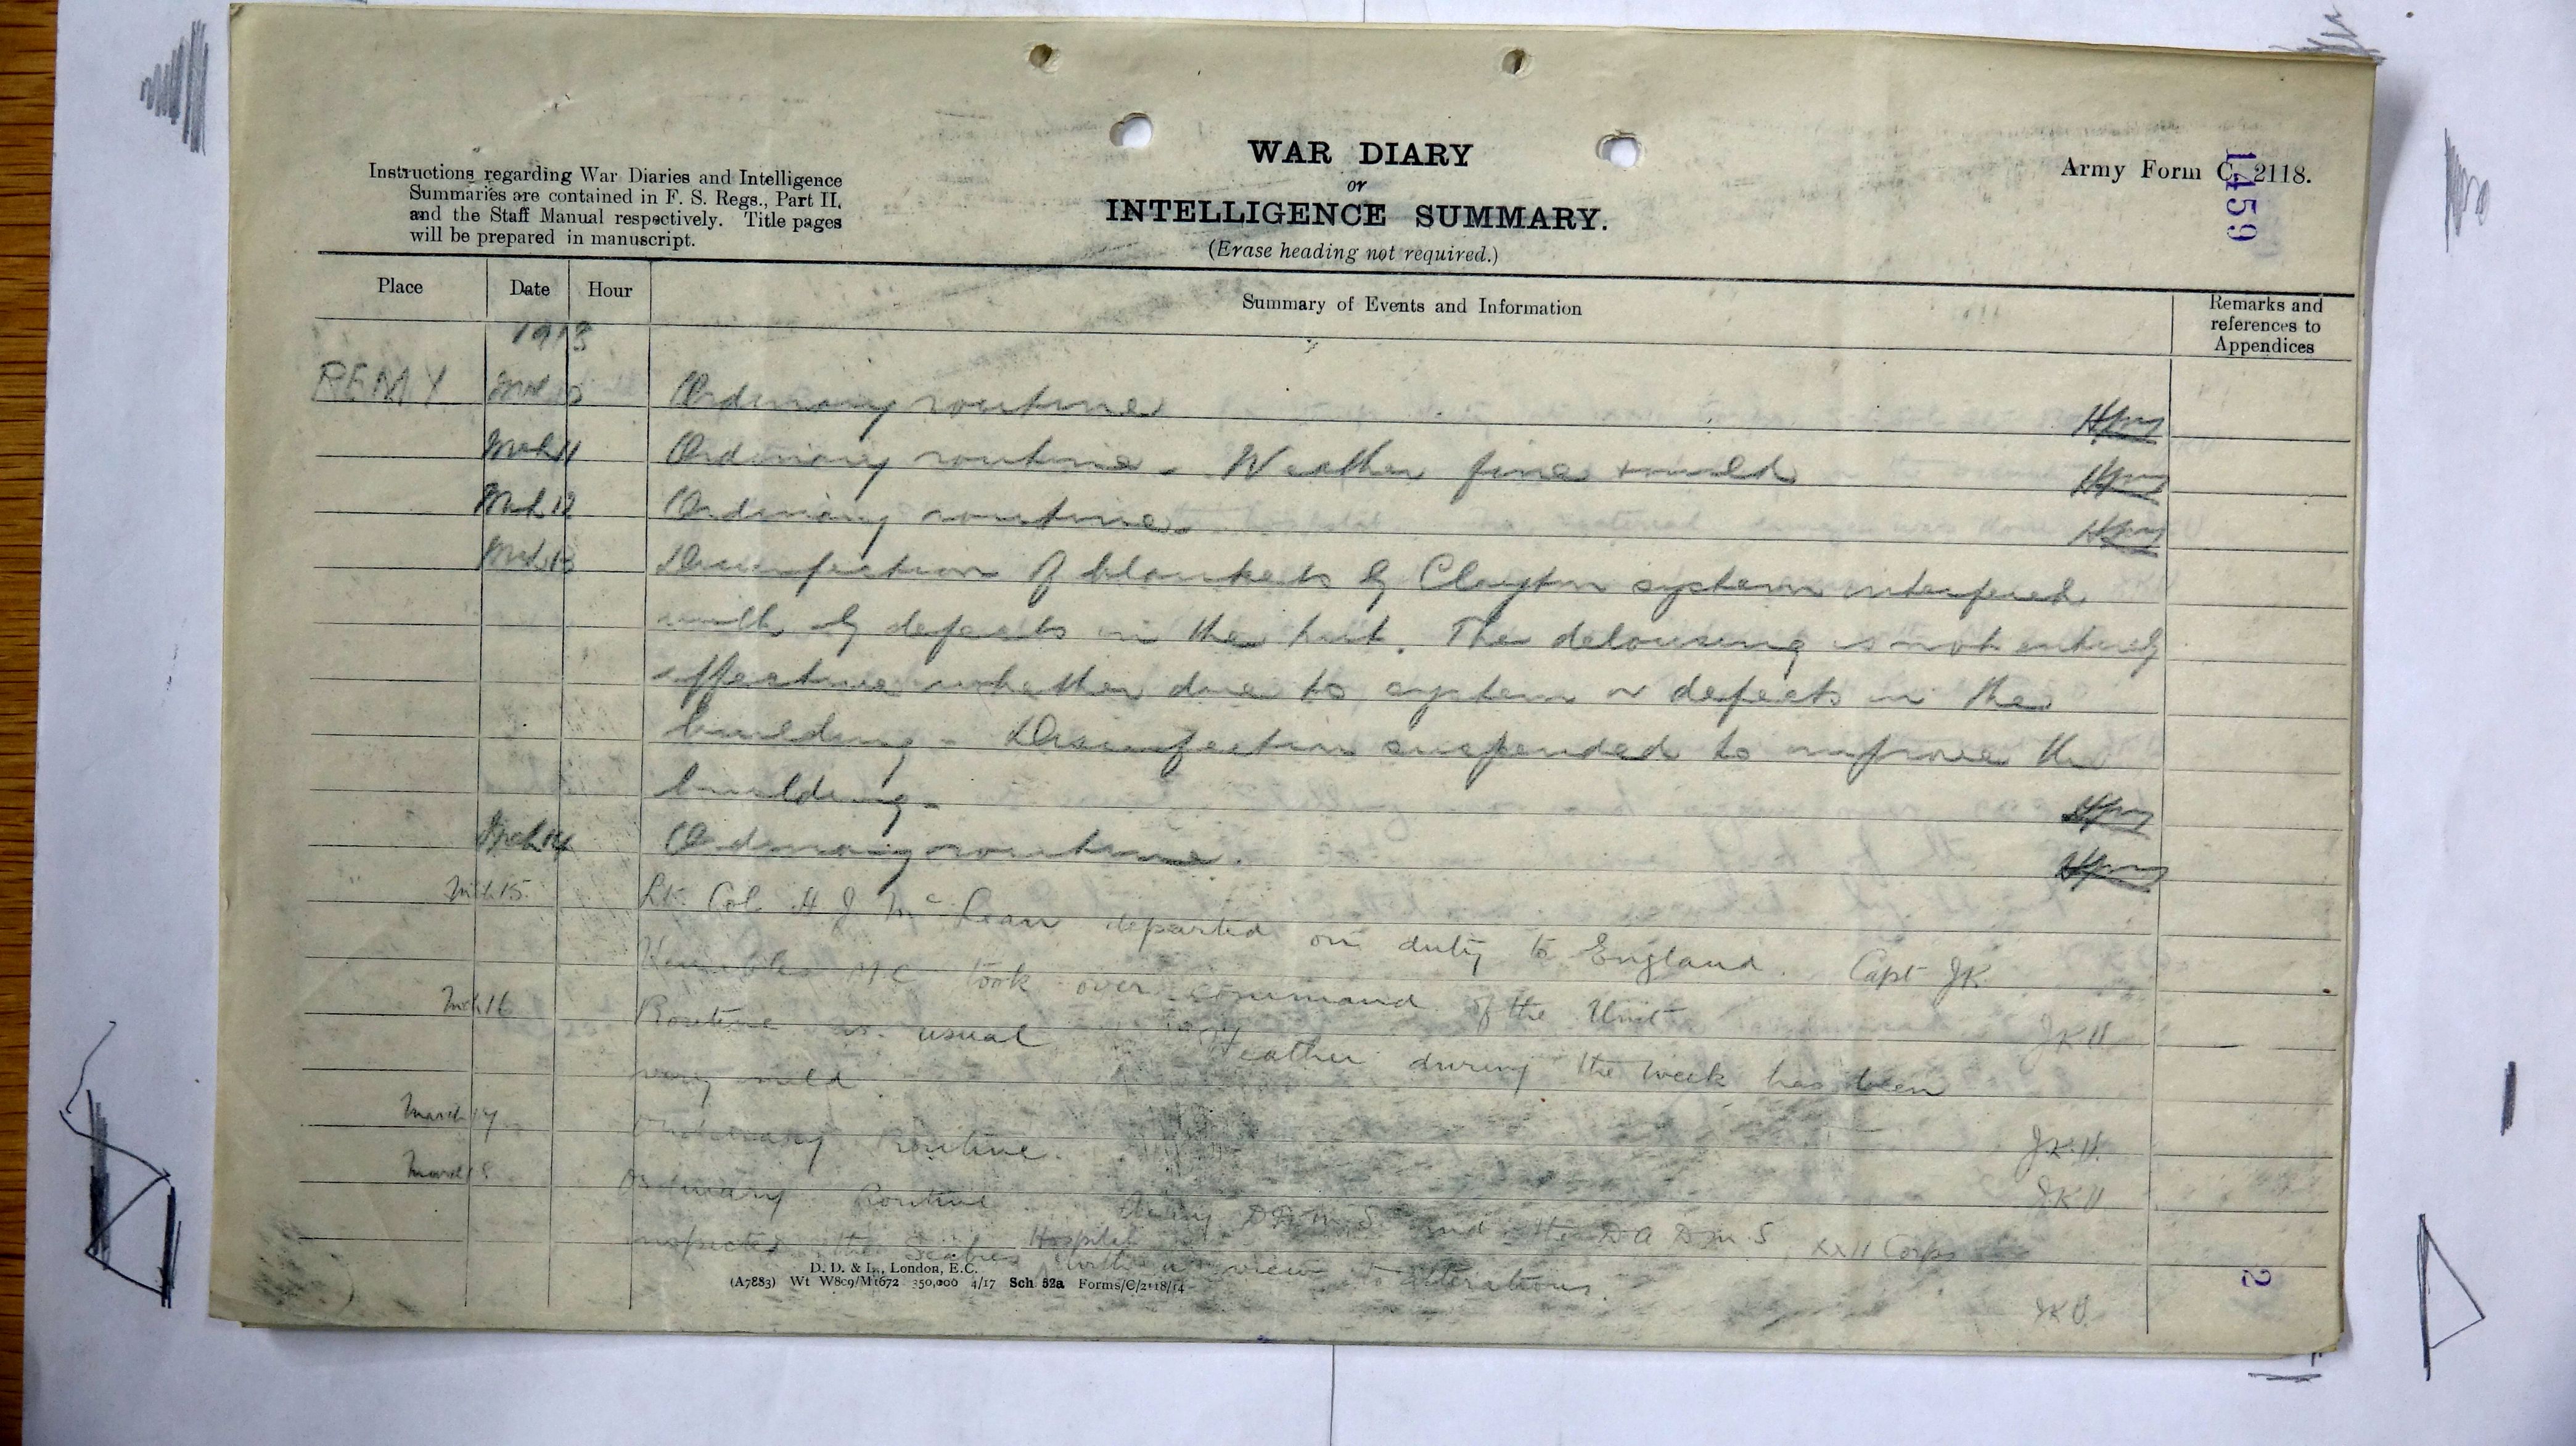 WAR DIARY
or
INTELLIGENCE SUMMARY.
(Erase heading not required.)
Army Form C. 2118.
11459
Instructions regarding War Diaries and Intelligence
Summaries are contained in F. S. Regs., Part II,
and the Staff Manual respectively. Title pages
will be prepared in manuscript.
Place Date Hour Summary of Events and Information Remarks and references to Appendices
1918
REMY Mch 10 Ordinary routine
Mch 11 Ordinary routine. Weather fine & mild
Mch 12 Ordinary routine.
Mch 13 Disinfection of blankets by Clayton system interfered
with by defects in the hut. The delousing is not entirely
effective whether due to system or defects in the
building - Disinfection suspended to improve the
building.
Mch 14 Ordinary routine.
Mch 15. Lt. Col. H J McLean departed on duty to England. Capt JK
MC took over command of the Unit JKV
Mch 16 Routine as usual Weather during the week has been
very mild J.K.V.
March 17 Ordinary Routine. J.K.V.
March 18 Ordinary Routine DDMS and the DADMS XXII Corps
inspected the Scabies Hospital with a view to alterations.
JKV.
D. D. & L., London, E.C.
(A7883) Wt W809/M1672 350,000 4/17 Sch 52a Forms/C/2118/14
2